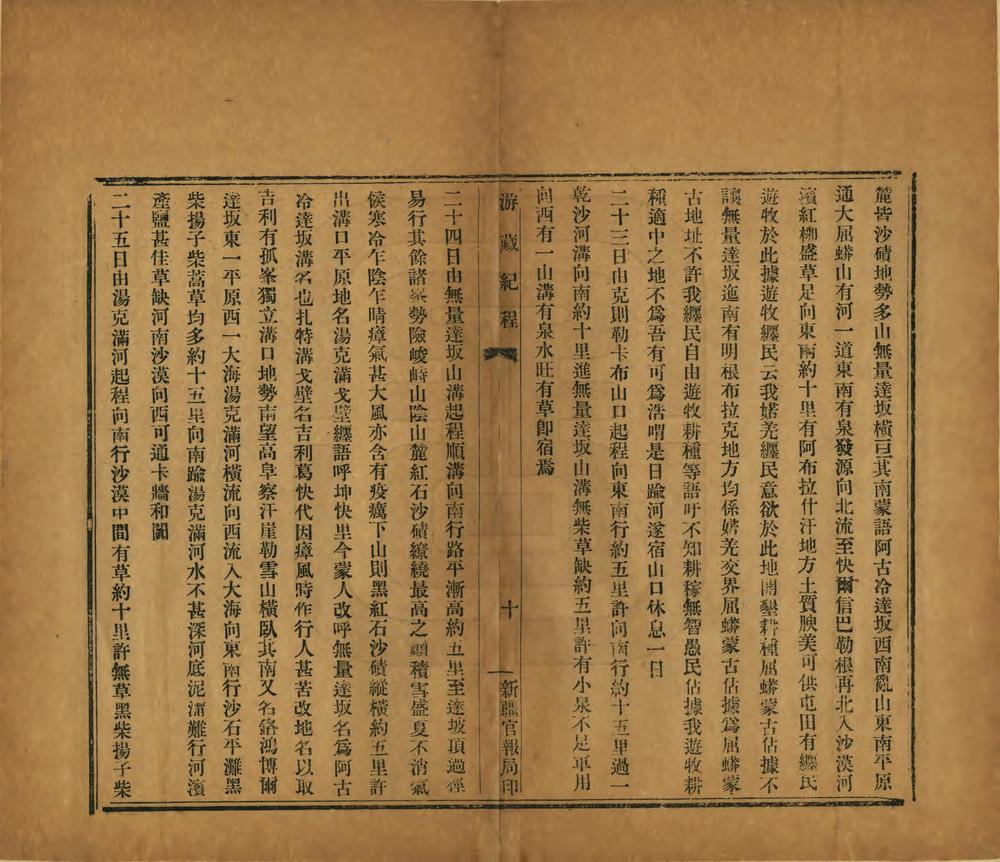 麓皆沙磧地勢多山無量達坂橫亘其南蒙語阿古冷達坂西南亂山東南平原
通大屈蟒山有河一道東南有泉發源向北流至快爾信巴勒根再北入沙漠河
濱紅柳盛草足向東南約十里有阿布拉什汗地方土質腴美可供屯田有纒民
遊牧於此據遊牧纒民云我婼羌纒民意欲於此地開墾耕種屈蟒蒙古佔據不
讓無量達坂迤南有明根布拉克地方均係婼羌交界屈蟒蒙古佔據爲屈蟒蒙
古地址不許我纒民自由遊牧耕種等語吁不知耕稼無智愚民佔據我遊牧耕
種適中之地不爲吾有可爲浩喟是日踰河遂宿山口休息一日
二十三日由克則勒卡布山口起程向東南行約五里許向南行約十五里過一
乾沙河溝向南約十里進無量達坂山溝無柴草缺約五里許有小泉不足軍用
向西有一山溝有泉水旺有草卽宿焉
游藏紀程 十 新疆官報局印
二十四日由無量達坂山溝起程順溝向南行路平漸高約五里至達坡頂過徑
易行其餘諸峯勢險峻峙山陰山麓紅石沙磧繚繞最高之顚積雪盛夏不消氣
候寒冷乍陰乍晴瘴氣甚大風亦含有疫癘下山則黑紅石沙磧縱橫約五里許
出溝口平原地名湯克滿戈壁纒語呼坤快里今蒙人改呼無量達坂名爲阿古
冷達坂溝名也扎特溝戈壁名吉利葛快代因瘴風時作行人甚苦改地名以取
吉利有孤峯獨立溝口地勢南望高阜察汗崖勒雪山橫臥其南又名鉻鴻博爾
達坂東一平原西一大海湯克滿河橫流向西流入大海向東南行沙石平灘黑
柴揚子柴蒿草均多約十五里向南踰湯克滿河水不甚深河底泥濘難行河濱
產鹽甚佳草缺河南沙漠向西可通卡牆和闐
二十五日由湯克滿河起程向南行沙漠中間有草約十里許無草黑柴揚子柴